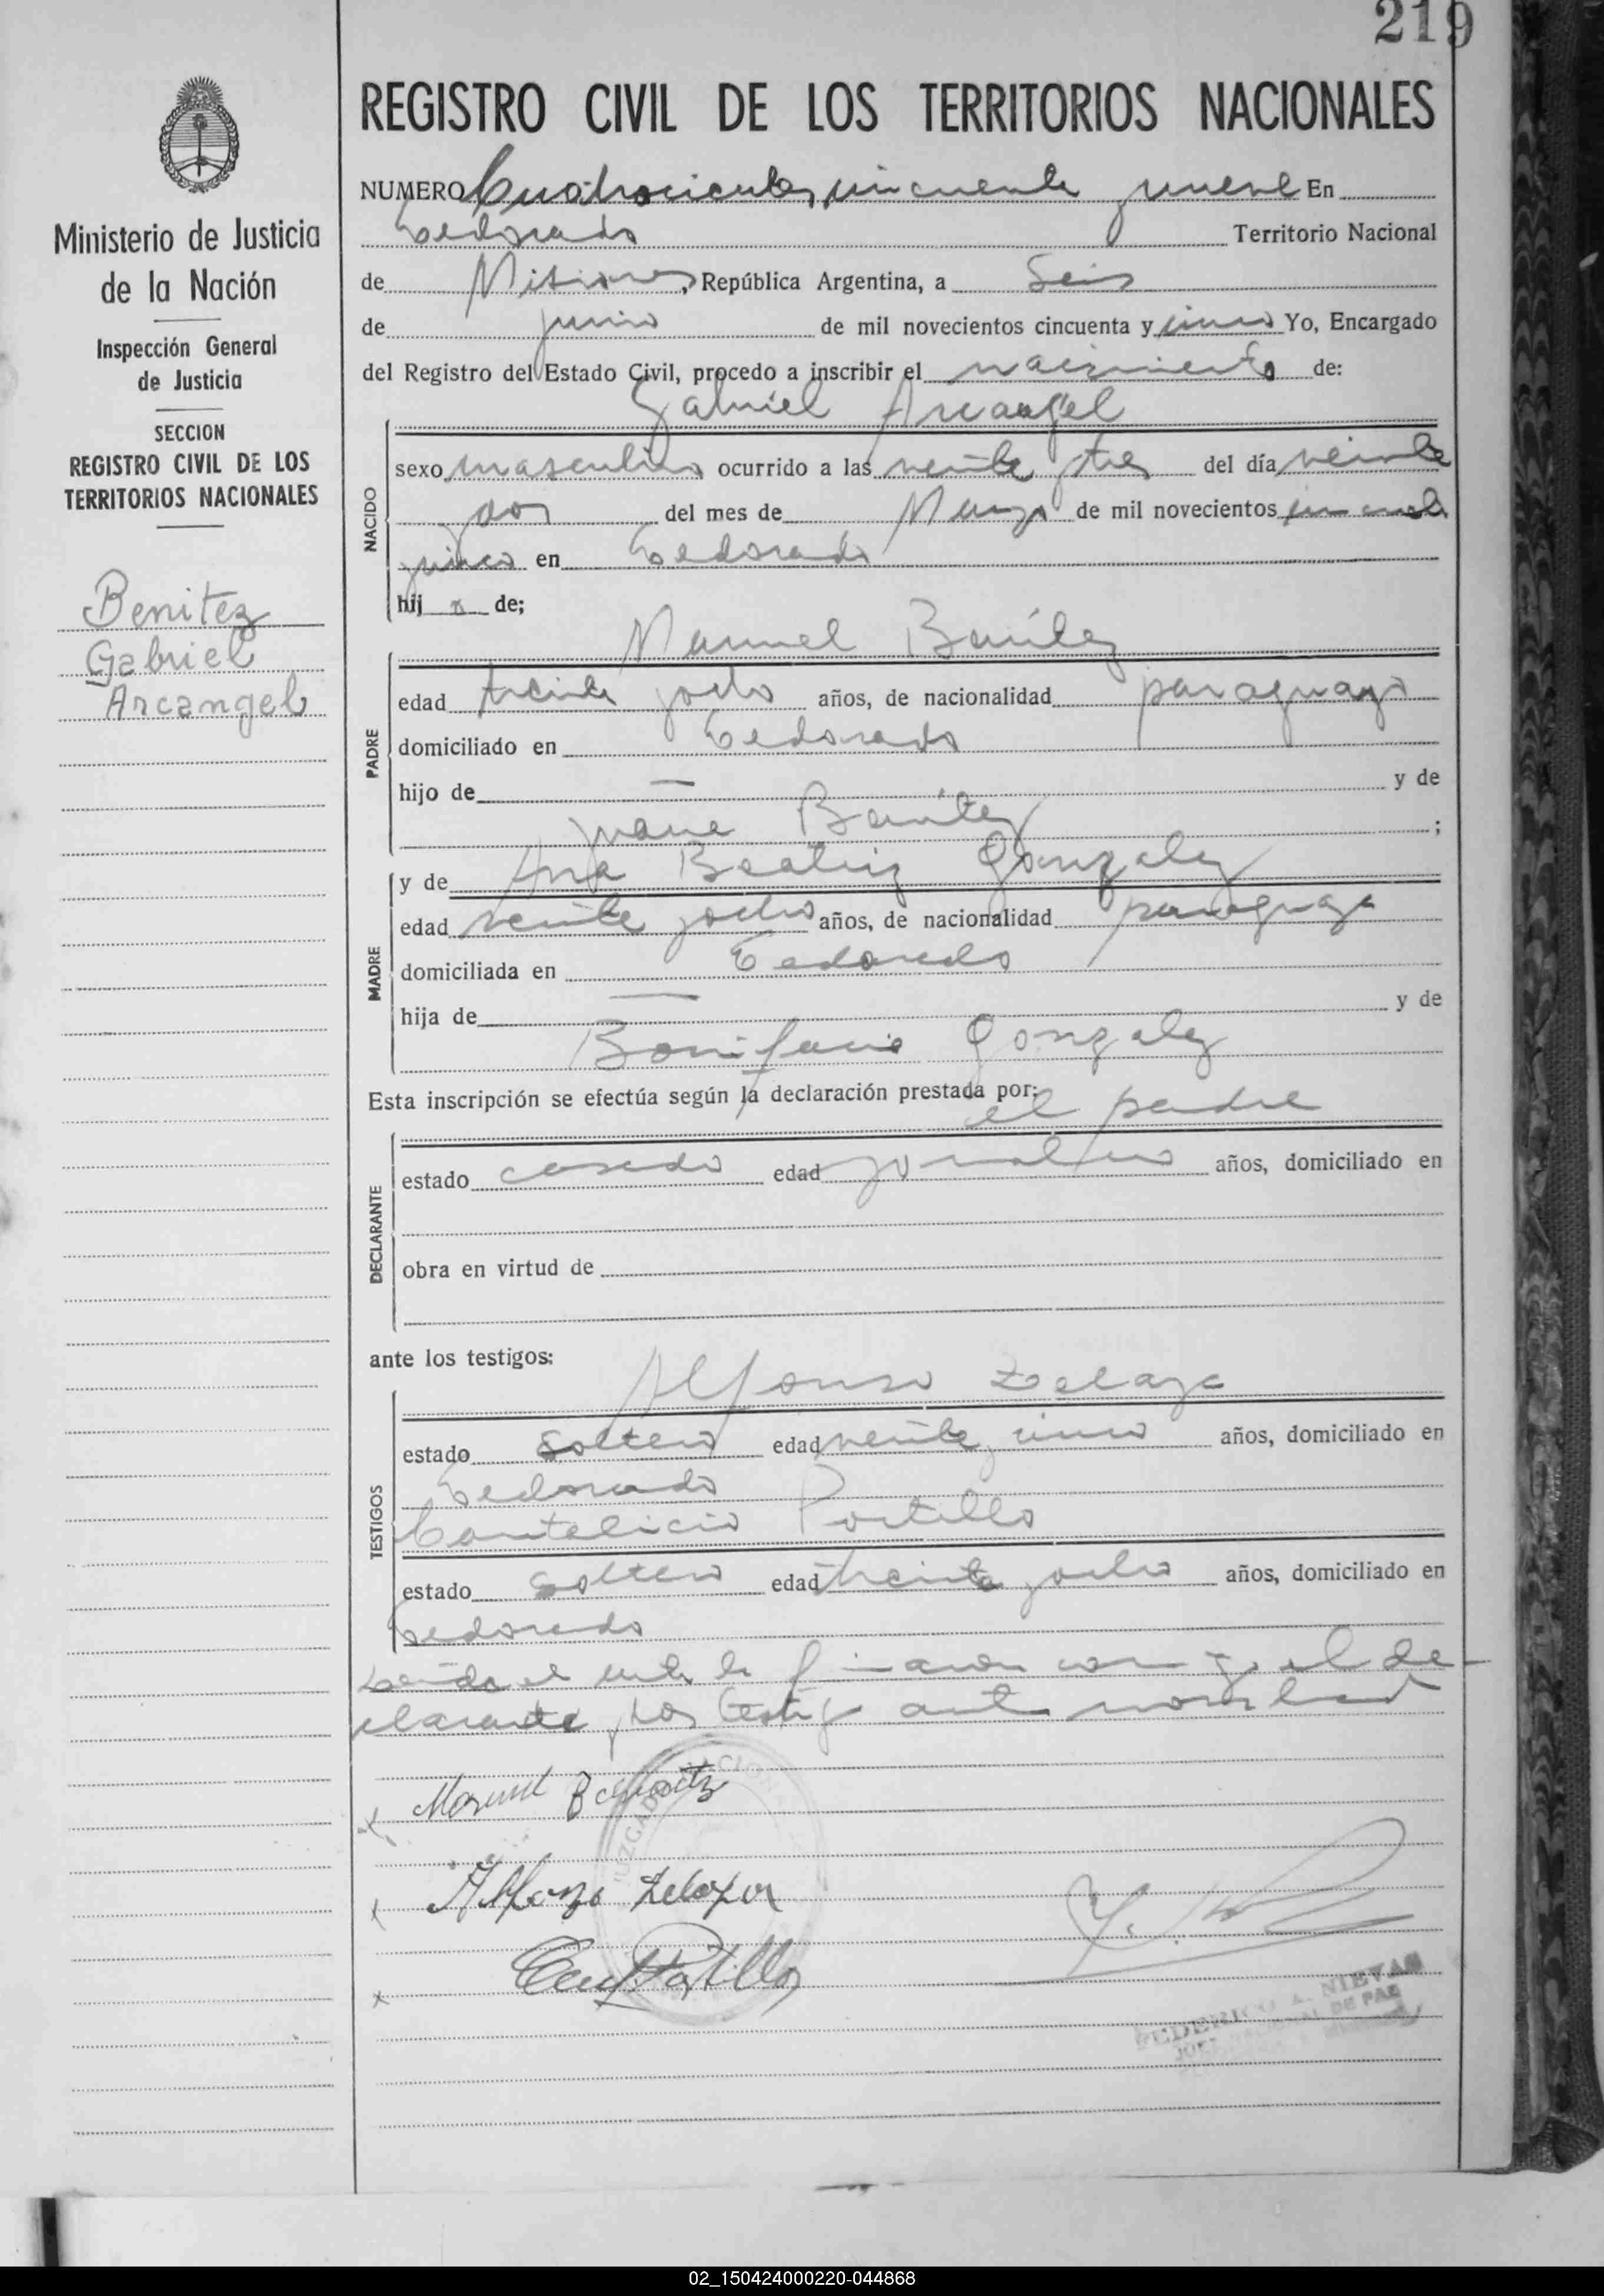 219
REGISTRO CIVIL DE LOS TERRITORIOS NACIONALES
Ministerio de Justicia
de la Nación
Inspección General
de Justicia
SECCION
REGISTRO CIVIL DE LOS
TERRITORIOS NACIONALES
Benitez
Gabriel
Arcangel
NUMERO Cuatrocientos cincuenta y nueve En
Eldorado Territorio Nacional
de Misiones, República Argentina, a Seis
de junio de mil novecientos cincuenta y cinco Yo, Encargado
del Registro del Estado Civil, procedo a inscribir el nacimiento de:
Gabriel Arcangel
NACIDO
sexo masculino ocurrido a las veinte y tres del día veinte
y dos del mes de Marzo de mil novecientos cincuenta
y cinco en Eldorado
hij o de;
Manuel Benitez
PADRE
edad treinta y ocho años, de nacionalidad paraguayo
domiciliado en Eldorado
hijo de — y de
Juana Benitez ;
MADRE
y de Ana Beatriz Gonzalez
edad veinte y ocho años, de nacionalidad paraguaya
domiciliada en Eldorado
hija de — y de
Bonifacia Gonzalez
Esta inscripción se efectúa según la declaración prestada por:
el padre
DECLARANTE
estado casado edad jornalero años, domiciliado en
obra en virtud de
ante los testigos:
TESTIGOS
Alfonso Zelaya
estado soltero edad veinte y cinco años, domiciliado en
Eldorado
Cantelicio Portillo
estado soltero edad treinta y ocho años, domiciliado en
Eldorado
Leida el acta la firmaron conmigo el de-
clarante y los testigos antes nombrados
Manuel Benitz
Alfonzo Zelaya
Cant Portillo
JUZGADO
FEDERICO A. NIEVAS
JUEZ NACIONAL DE PAZ
02_150424000220-044868